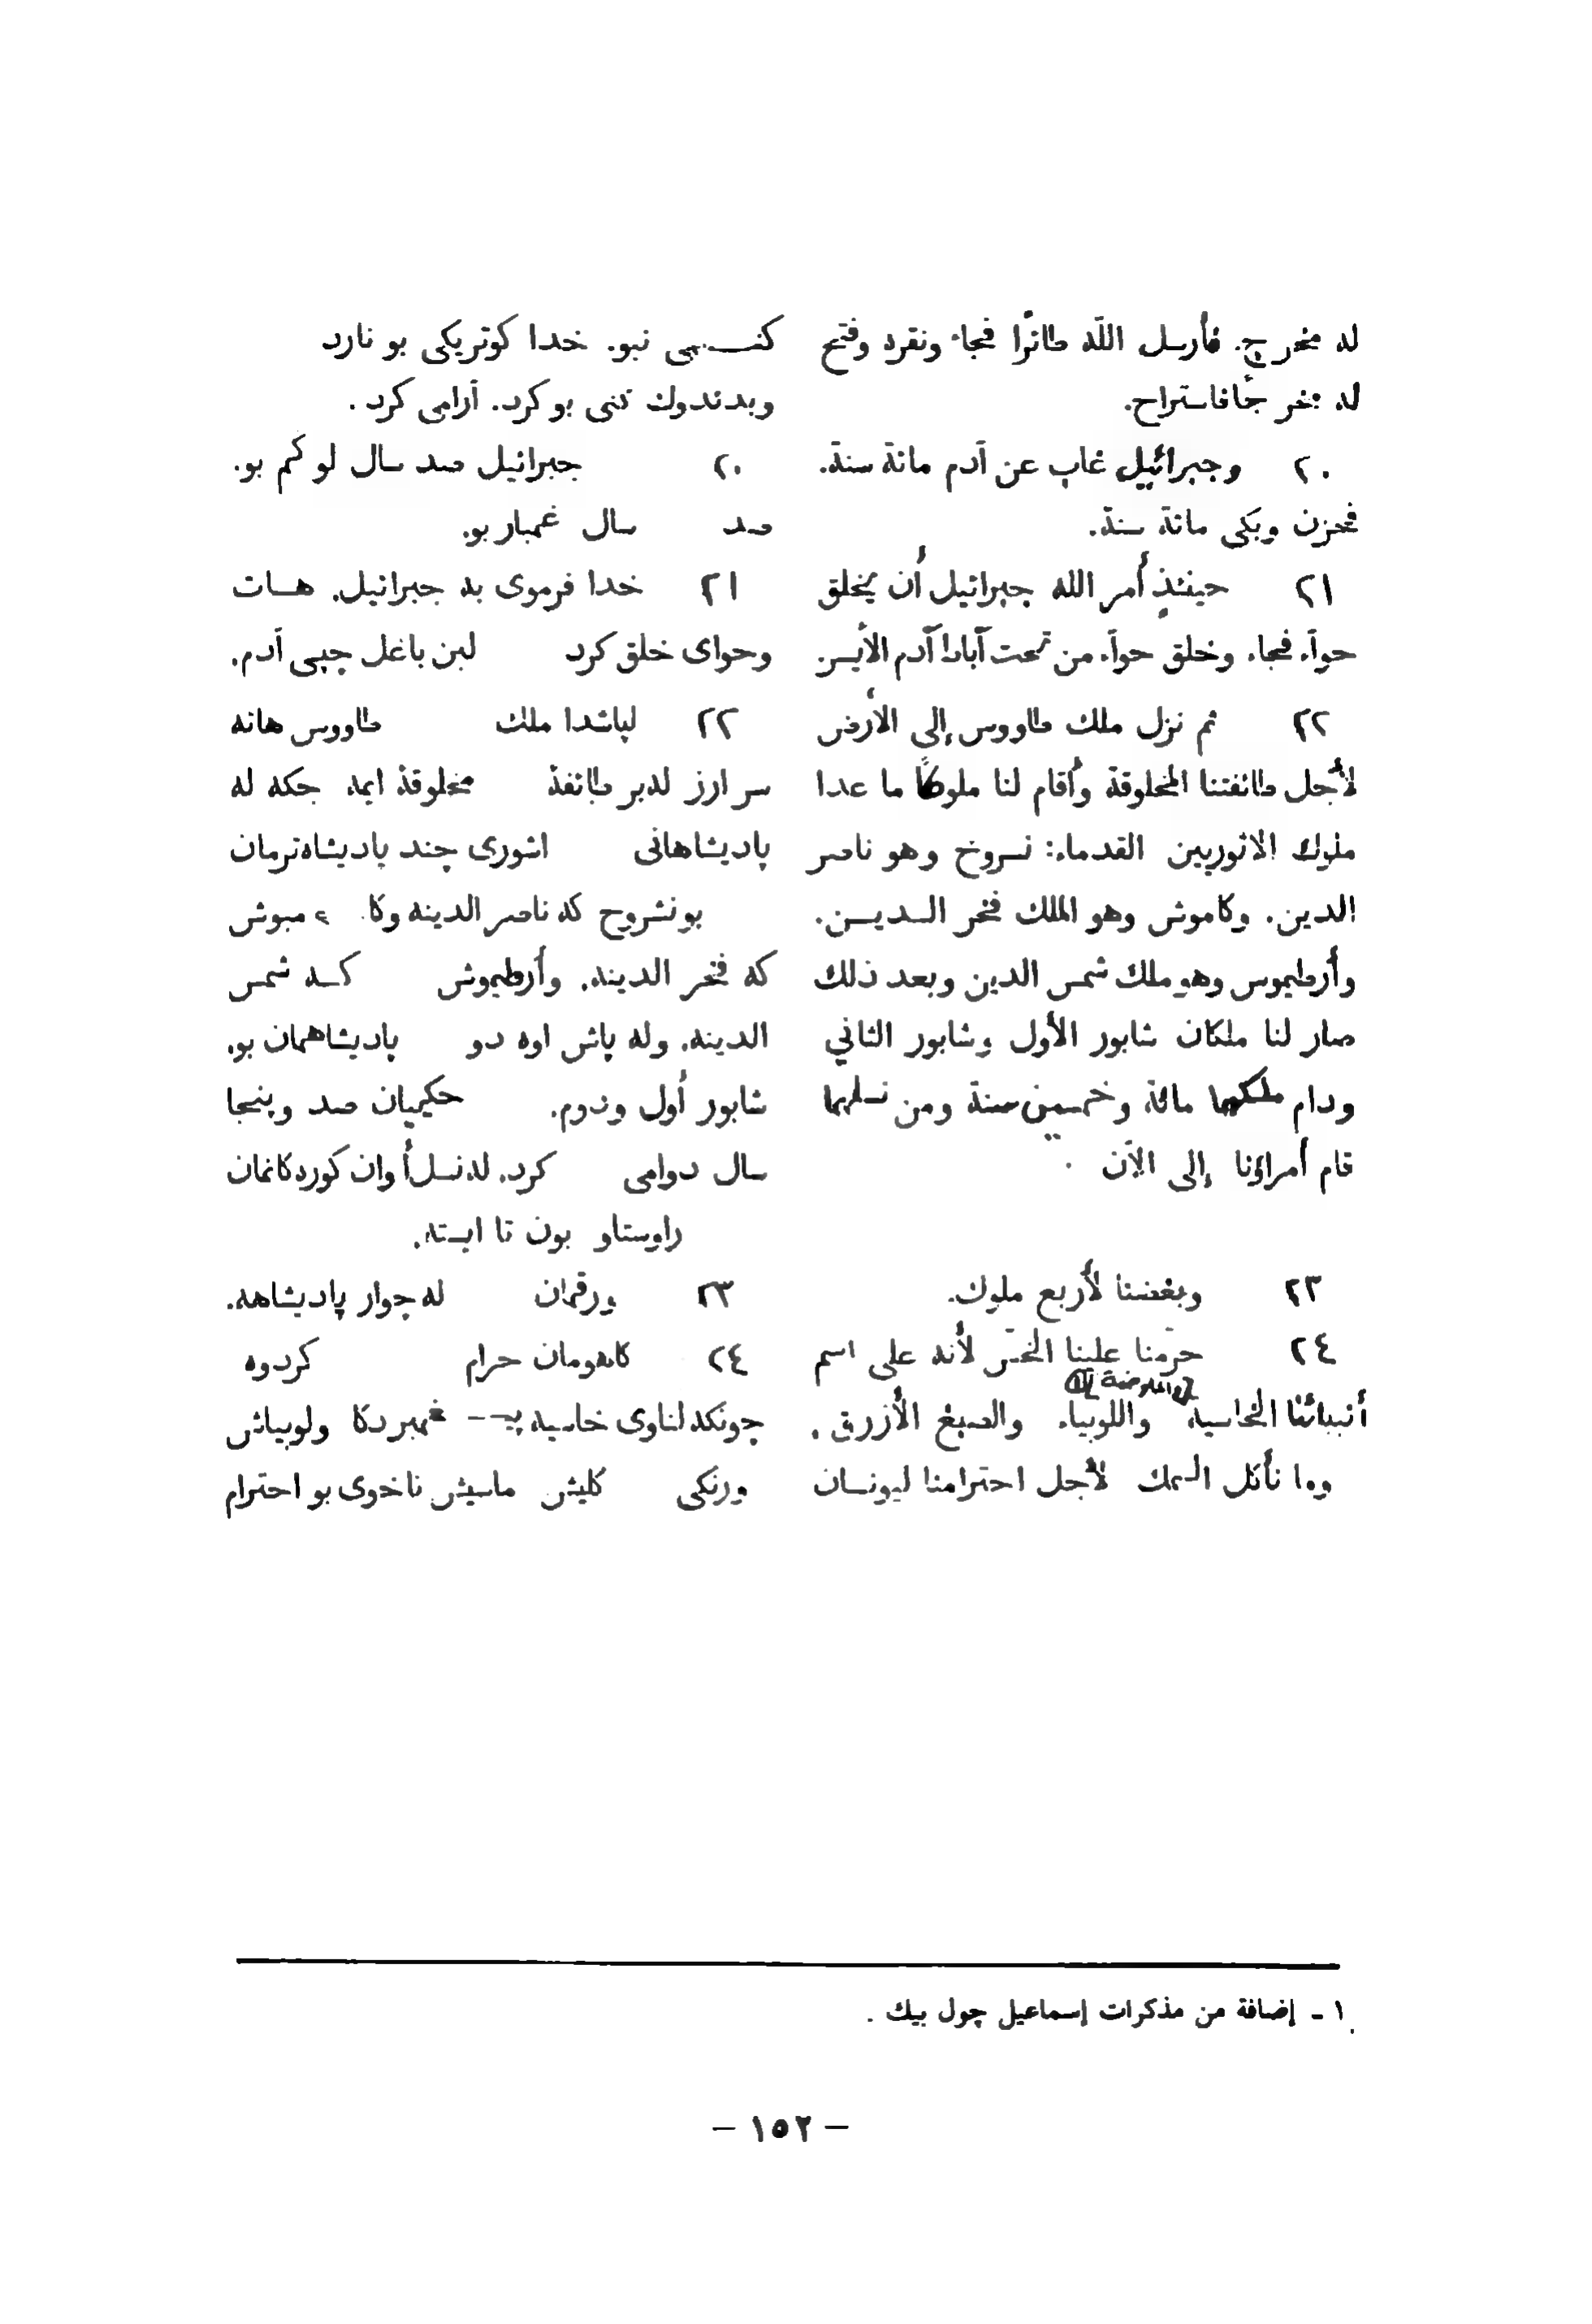 له مخرج. فأرسل اللّه طائرًا فجاء ونقره وفتح
له مخرجًا فاستراح.
٢٠ وجبرائيل غاب عن آدم مائة سنة.
فحزن وبكى مائة سنة.
٢١ حينئذٍ أمر الله جبرائيل أن يخلق
حوآء فجاء وخلق حوآء من تحت آباط آدم الأيسر.
٢٢ ثم نزل ملك طاووس إلى الأرض
لأجل طائفتنا المخلوقة وأقام لنا ملوكًا ما عدا
ملوك الاثوريين القدماء: نسروخ وهو ناصر
الدين. وكاموش وهو الملك فخر الديــن.
وأرطيموس وهو ملك شمس الدين وبعد ذلك
صار لنا ملكان شابور الأول وشابور الثاني
ودام ملكهما مائة وخمسين سنة ومن نسلهما
قام أمراؤنا إلى الآن .
٢٣ وبغضنا لأربع ملوك.
٢٤ حرّمنا علينا الخسّ لأنه على اسم
أنبيائنا الخاسية واللوبياء والصبغ الأزرق .
وما نأكل السمك لأجل احترامنا ليونسان
كنــجى نبو. خدا كوتريكى بو نارد
وبدندوك تنى بو كرد. آرامى كرد .
٢٠ جبرائيل صد سال لو كم بو.
صد سال غمبار بو.
٢١ خدا فرموى به جبرائيل. هــات
وحواى خلق كرد لبن باغل چپى آدم.
٢٢ لپاشدا ملك طاووس هاته
سر ارز لدبر طايفة مخلوقة ايمه جكه له
پاديشاهانى اشورى چند پاديشاه ترمان
بو نشروح كه ناصر الدينه وكا مبوش
كه فخر الدينه. وأرطيموش كــه شمس
الدينه. وله پاش اوه دو پاديشاهمان بو.
شابور أول ودوم. حكميان صد وپنجا
سال دوامى كرد. له نسل أوان كوردكانمان
راوستاو بون تا ايسته.
٢٣ ورقمان له چوار پاديشاهه.
٢٤ كاهومان حرام كردوه
چونكه لناوى خاسيه پـ-- غمبردكا ولوبياش
ورنكى كليش ماسيش ناخوى بو احترام
١ ـ إضافة من مذكرات إسماعيل چول بيك .
– ١٥٢ –